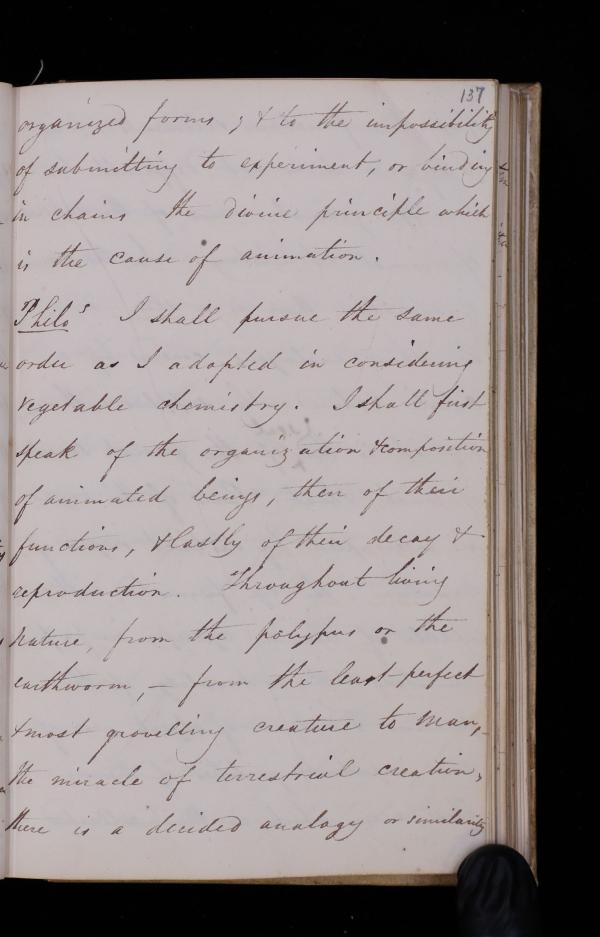 137
organized forms; & to the impossibility
of submitting to experiment, or binding
in chains the divine principle which
is the cause of animation.
Philos I shall pursue the same
order as I adopted in considering
vegetable chemistry. I shall first
speak of the organization & composition
of animated beings, then of their
functions, & lastly of their decay &
reproduction. Throughout living
nature, from the polypus or the
earthworm, – from the least perfect
& most grovelling creature to Man,
the miracle of terrestrial creation,
there is a decided analogy or similarity